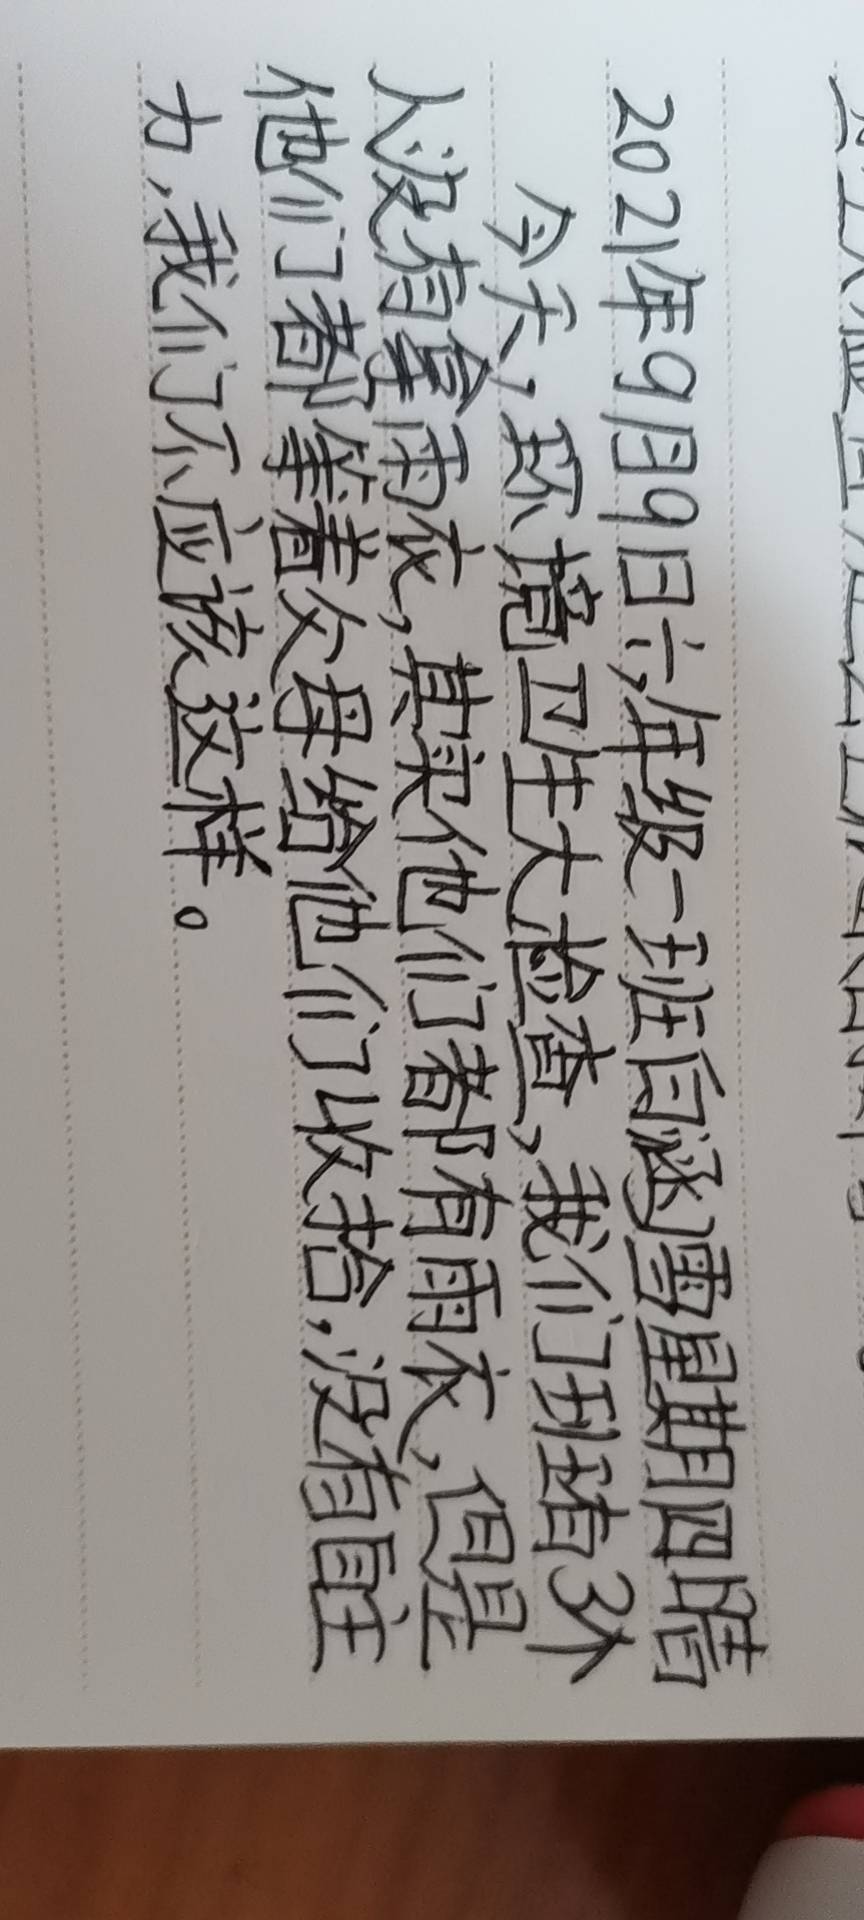 2021年9月9日六年级一班白涵雪星期四晴
今天，环境卫生大检查，我们班有3个
人没有拿雨衣，其实他们都有雨衣，但是
他们都等着父母给他们收拾，没有自主
力，我们不应该这样。